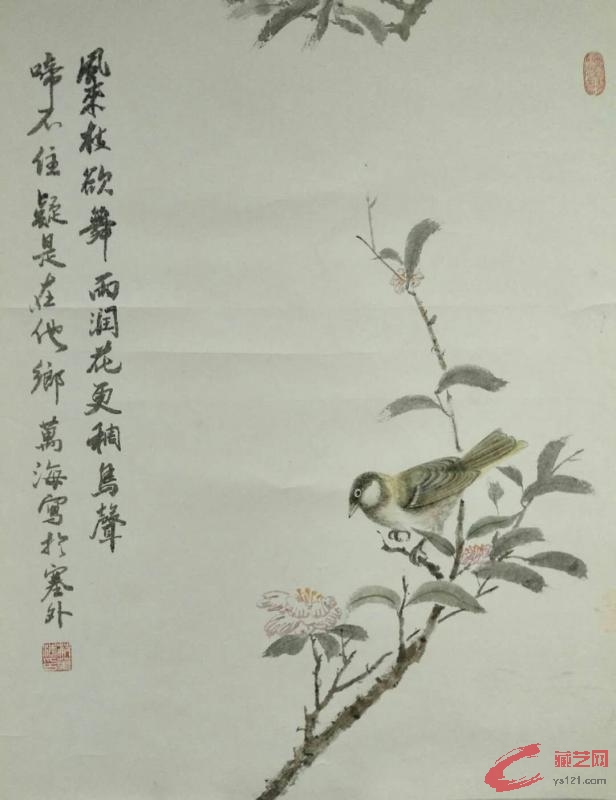 風來枝欲舞雨润花更稠鳥聲
啼不住疑是在他鄉萬海寫於塞外
藏艺网
ys121.com